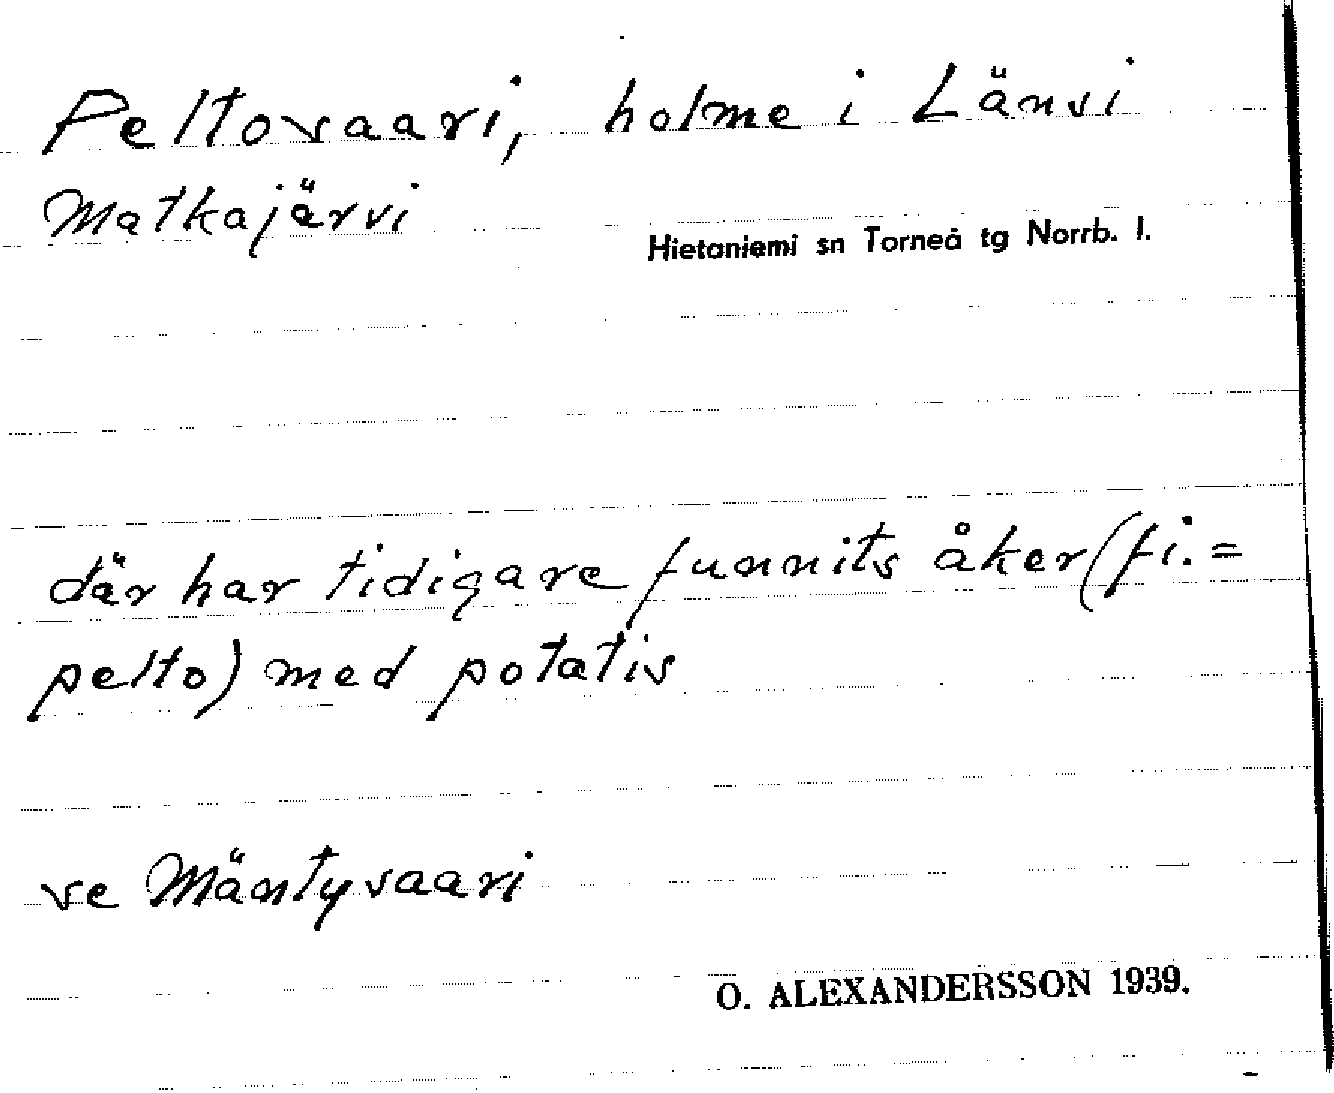 Peltosaari, holme i Länsi
Matkajärvi
Hietaniemi sn Torneå tg Norrb. l.
där har tidigare funnits åker (fi. =
pelto) med potatis
se Mäntysaari
O. ALEXANDERSSON 1939.